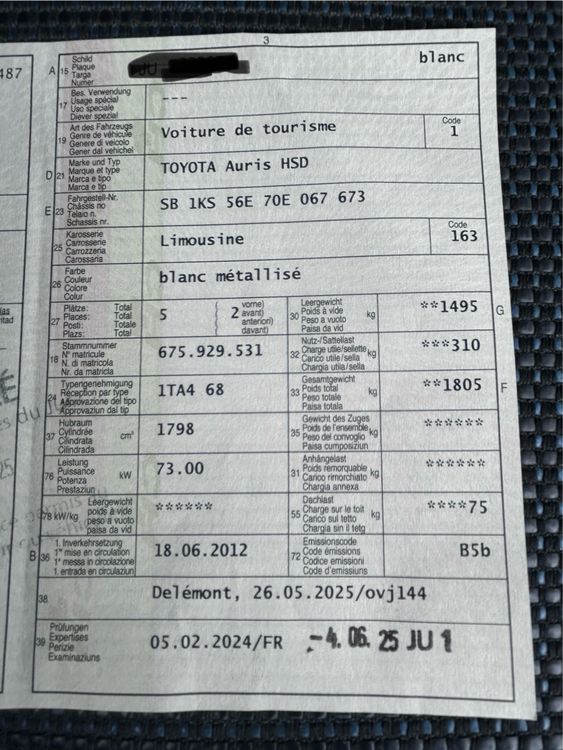 3
487
A 15 Schild Plaque Targa Numer blanc
17 Bes. Verwendung Usage spécial Uso speciale Diever spezial ---
19 Art des Fahrzeugs Genre de véhicule Genere di veicolo Gener dal vehichel Voiture de tourisme Code 1
D 21 Marke und Typ Marque et type Marca e tipo Marca e tip TOYOTA Auris HSD
E 23 Fahrgestell-Nr. Châssis no Telaio n. Schassis nr. SB 1KS 56E 70E 067 673
25 Karosserie Carrosserie Carrozzeria Carossaria Limousine Code 163
26 Farbe Couleur Colore Colur blanc métallisé
27 Plätze: Total Places: Total Posti: Totale Plazs: Total 5 2 vorne) avant) anteriori) davant) 30 Leergewicht Poids à vide Peso a vuoto Paisa da vid kg **1495 G
18 Stammnummer N° matricule N. di matricola Nr. da matricla 675.929.531 32 Nutz-/Sattellast Charge utile/sellette Carico utile/sella Chargia utila/sella kg ***310
24 Typengenehmigung Réception par type Approvazione del tipo Approvaziun dal tip 1TA4 68 33 Gesamtgewicht Poids total Peso totale Paisa totala kg **1805 F
37 Hubraum Cylindrée Cilindrata Cilindrada cm³ 1798 35 Gewicht des Zuges Poids de l'ensemble Peso del convoglio Paisa cumposiziun kg ******
76 Leistung Puissance Potenza Prestaziun kW 73.00 31 Anhängelast Poids remorquable Carico rimorchiato Chargia annexa kg ******
78 kW/kg Leergewicht poids à vide peso a vuoto paisa da vid ****** 55 Dachlast Charge sur le toit Carico sul tetto Chargia sin il tetg kg ****75
B 36 1. Inverkehrsetzung 1re mise en circulation 1a messa in circolazione 1. entrada en circulaziun 18.06.2012 72 Emissionscode Code émissions Codice emissioni Code d'emissiuns B5b
38 Delémont, 26.05.2025/ovj144
39 Prüfungen Expertises Perizie Examinaziuns 05.02.2024/FR -4. 06. 25 JU 1